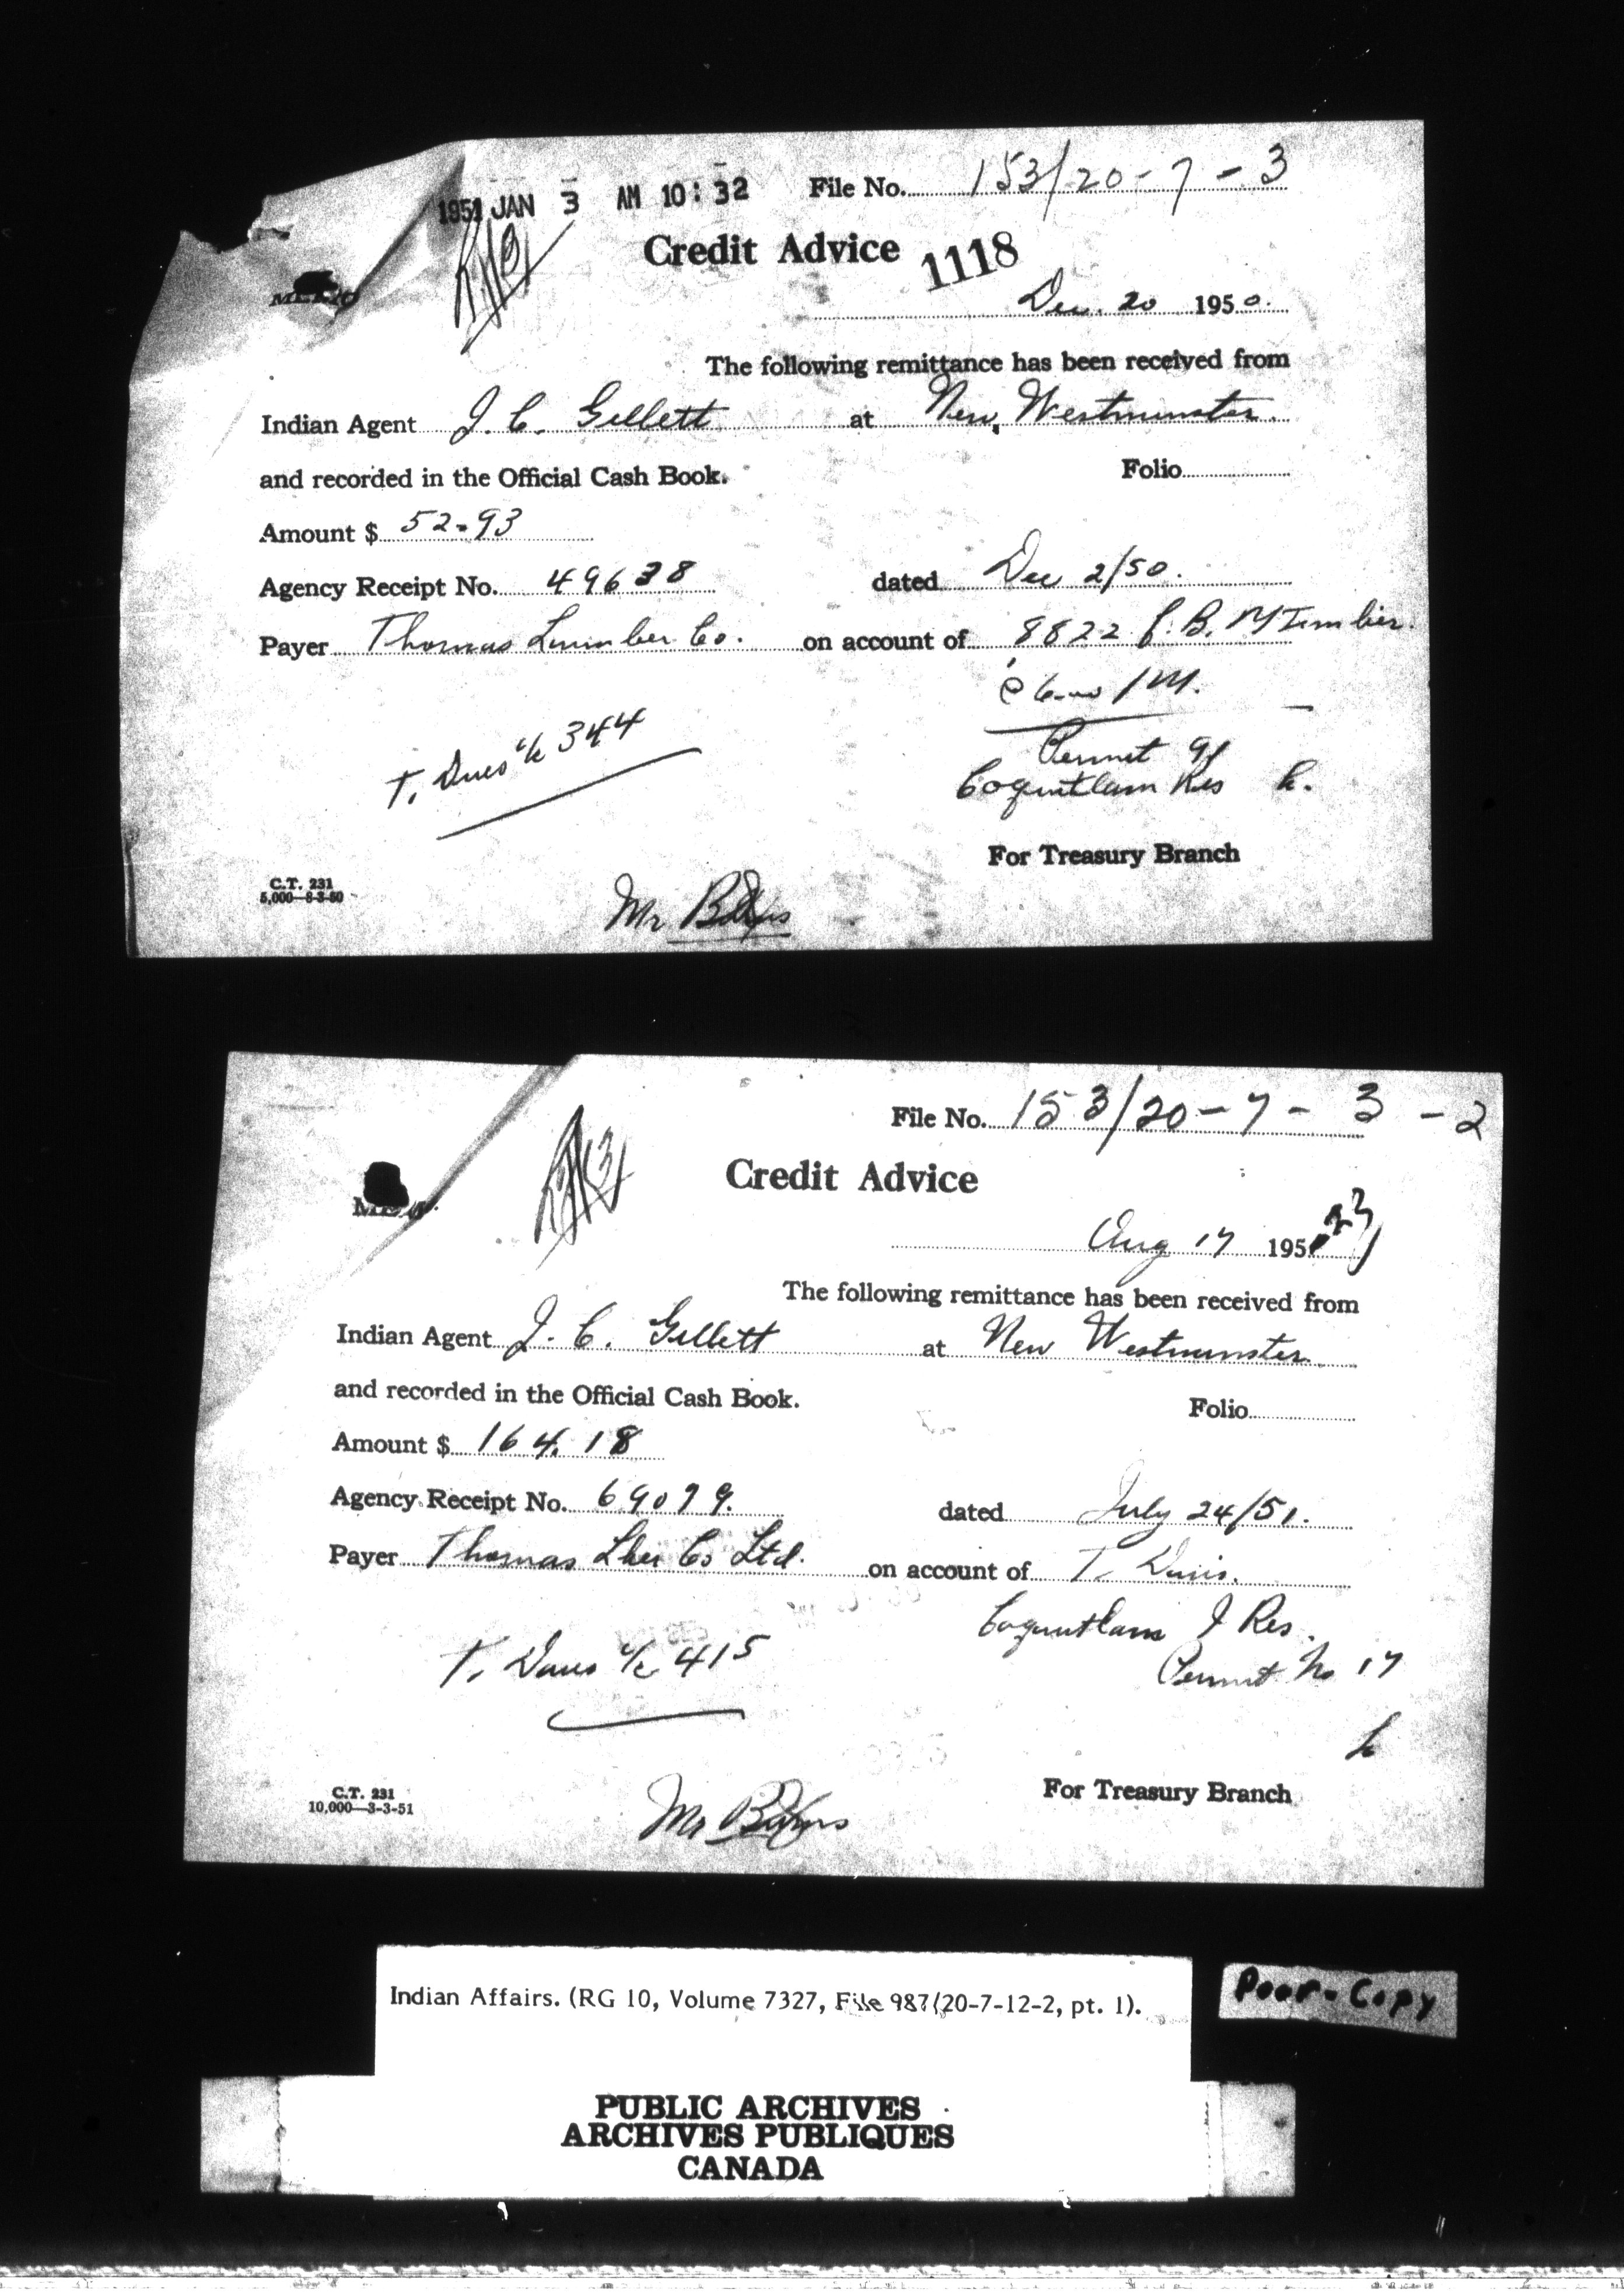 1951 JAN 3 AM 10:32 File No. 153/20-7-3
Credit Advice 1118
Dec. 20 1950.
The following remittance has been received from
Indian Agent J. C. Gillett at New Westminster.
and recorded in the Official Cash Book. Folio
Amount $ 52-93
Agency Receipt No. 49638 dated Dec 2/50.
Payer Thomas Lumber Co. on account of 8822 f.B.M Timber.
@ 6.00/M.
T. Dues a/c 344
Permit 9
Coquitlam Res
For Treasury Branch
C.T. 231
5,000—8-3-50
Mr
File No. 153/20-7-3-2
Credit Advice
Aug 17 195
The following remittance has been received from
Indian Agent J. C. Gillett at New Westminster
and recorded in the Official Cash Book. Folio
Amount $ 164.18
Agency Receipt No. 69079. dated July 24/51.
Payer Thomas Lber Co Ltd. on account of T. Dues.
Coquitlam I Res.
T. Dues a/c 415 Permit No 17
For Treasury Branch
C.T. 231
10,000—3-3-51
Mr
Indian Affairs. (RG 10, Volume 7327, File 987/20-7-12-2, pt. 1).
Poor-Copy
PUBLIC ARCHIVES
ARCHIVES PUBLIQUES
CANADA